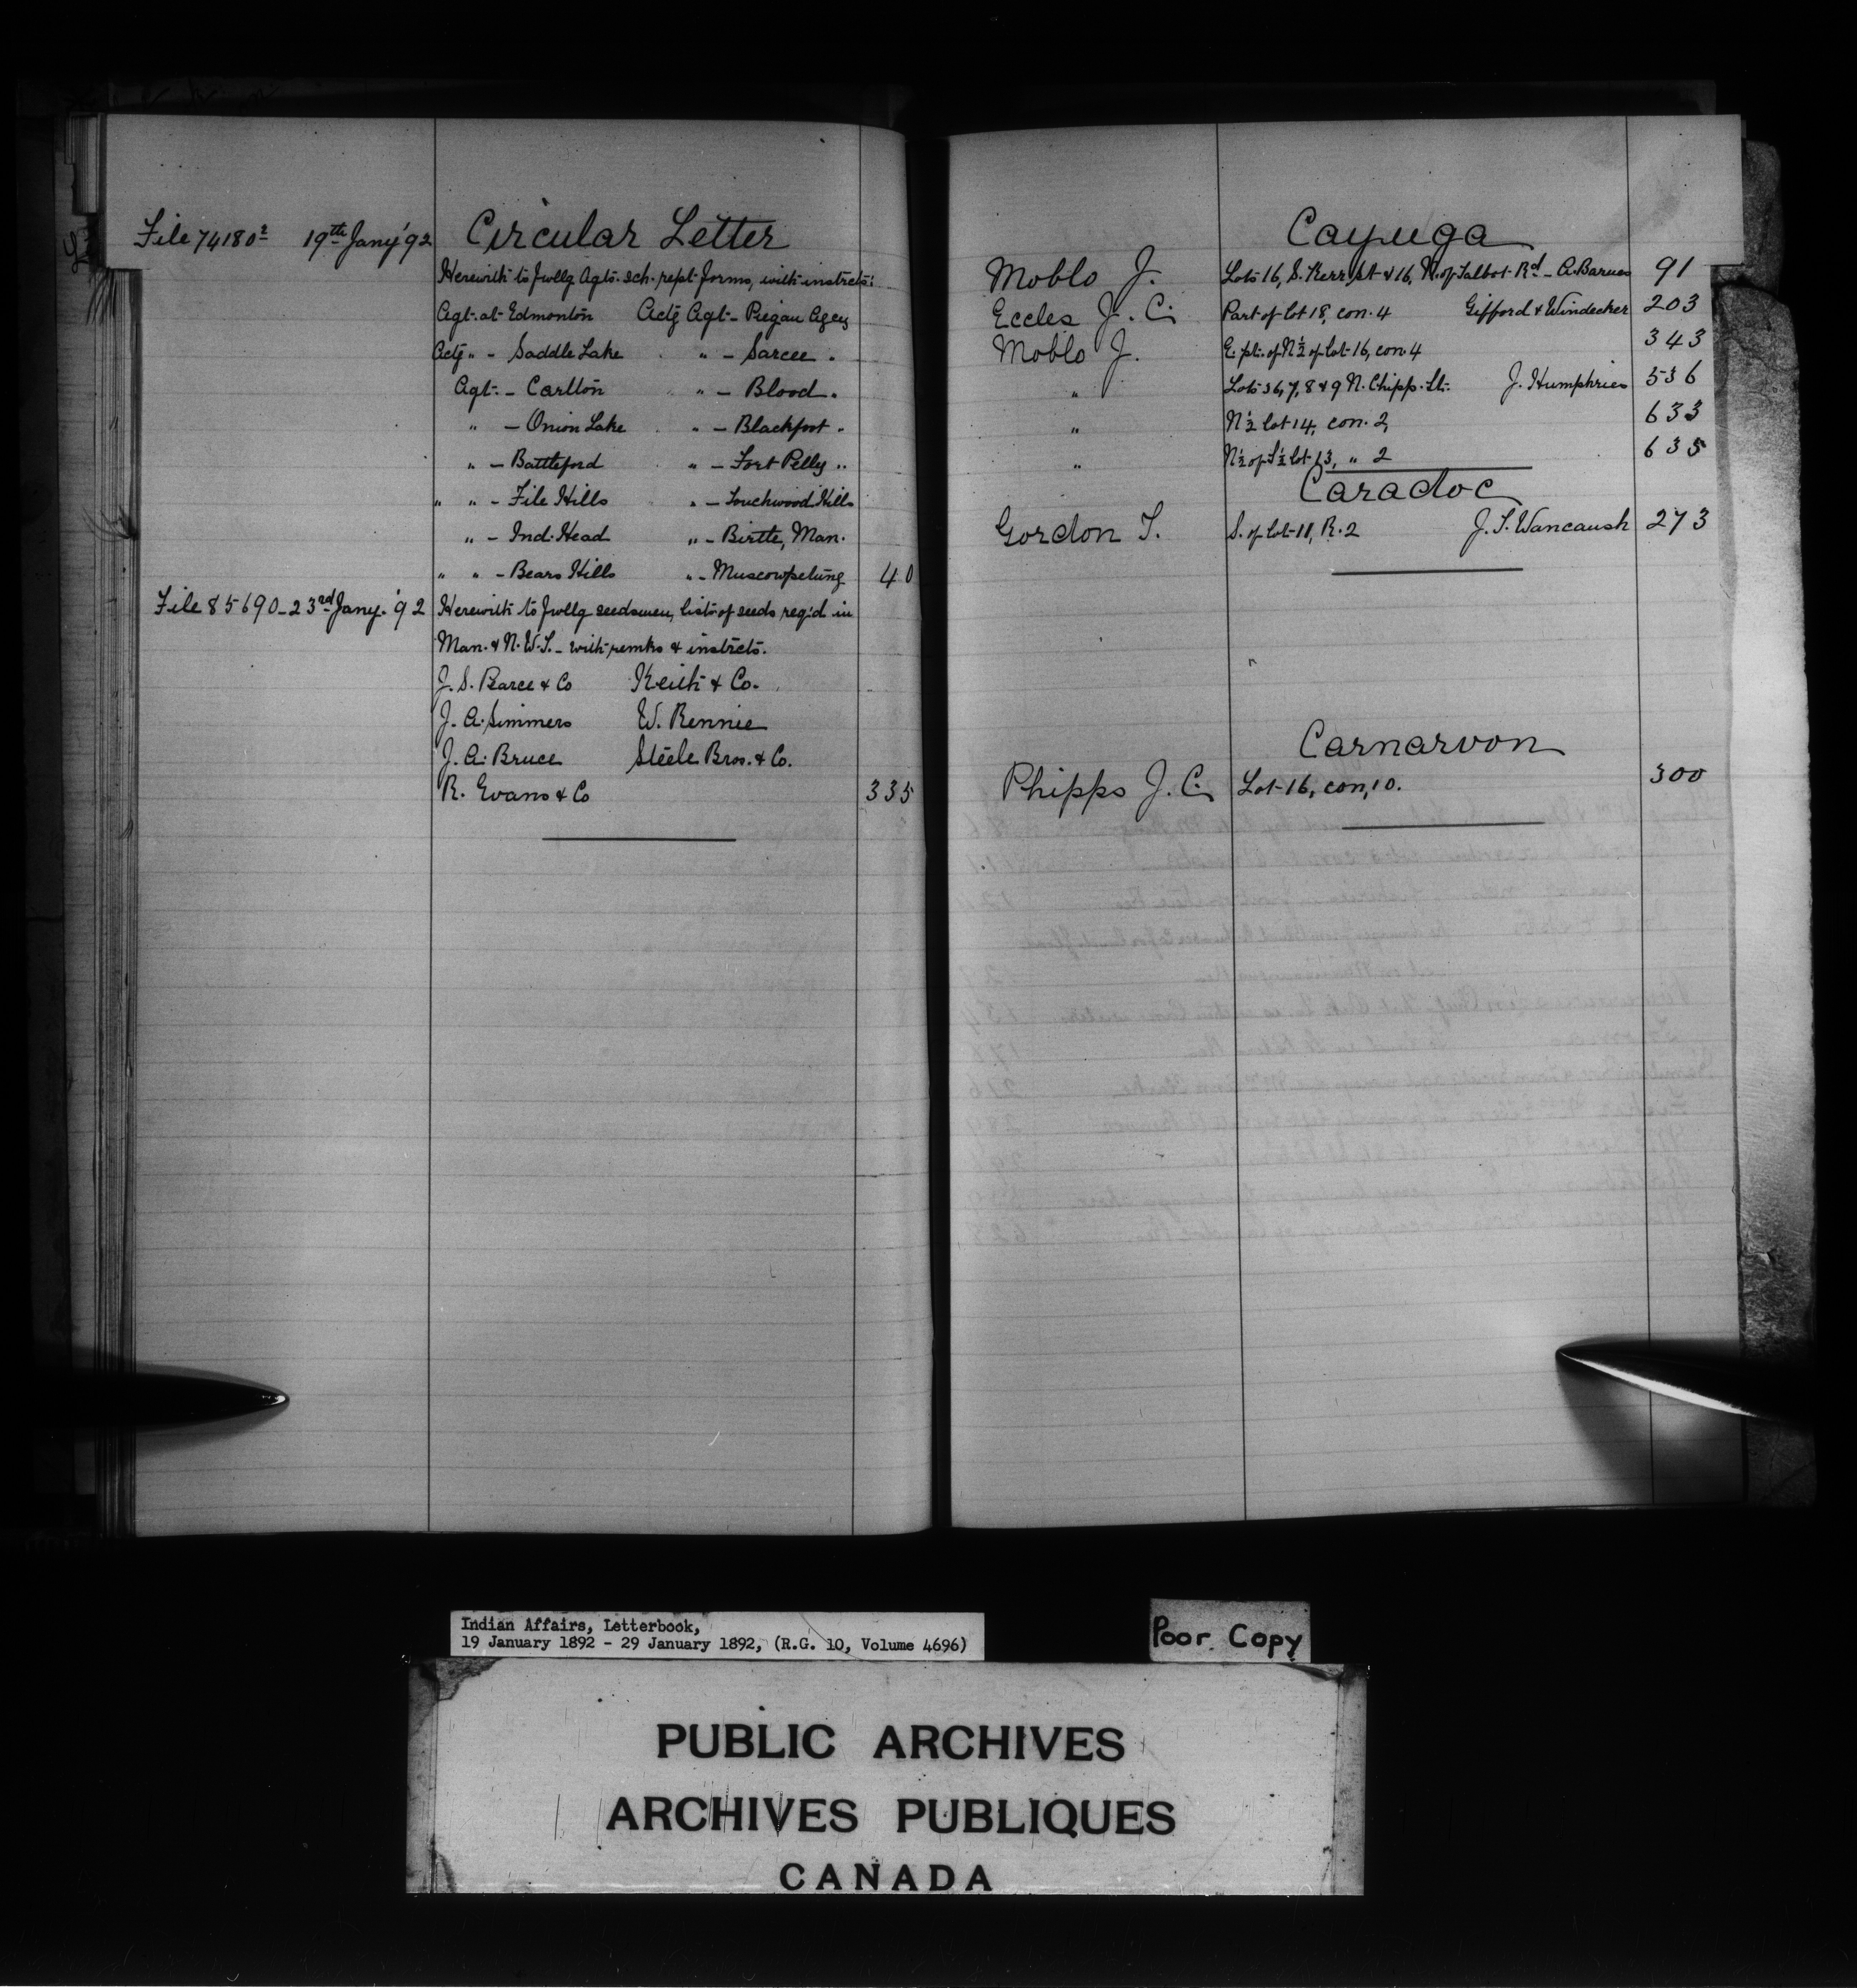 File 74180² 19th Jany '92 Circular Letter
Herewith to fwllg Agts. sch. rept. forms, with instrcts:
Agt. at Edmonton Actg Agt - Piegan Agcy
Actg " - Saddle Lake " - Sarcee "
Agt. - Carlton " - Blood "
" - Onion Lake " - Blackfoot "
" - Battleford " - Fort Pelly "
" " - File Hills " - Touchwood Hills
" - Ind. Head " - Birtle, Man.
" " - Bears Hills " - Muscowpetung 40
File 85690 - 23rd Jany. '92 Herewith to fwllg seedsmen, lists of seeds reqd in
Man. & N.W.T. - with remks & instrcts.
J. S. Pearce & Co Keith & Co.
J. A. Simmers W. Rennie
J. A. Bruce Steele Bros. & Co.
R. Evans & Co 335
Cayuga
Moblo J. Lots 16, S. Kerr St & 16, N. of Talbot Rd - A. Barnes 91
Eccles J. C. Part of lot 18, con. 4 Gifford & Windecker 203
Moblo J. E. pt. of N½ of lot 16, con 4 343
" Lots 36, 7, 8 & 9 N. Chipp. St. J. Humphries 536
" N½ lot 14, con. 2, 633
" N½ of S½ lot 13, " 2 635
Caradoc
Gordon T. S. of lot 11, R. 2 J. T. Wancaush 273
Carnarvon
Phipps J. C. Lot 16, con, 10. 300
Indian Affairs, Letterbook,
19 January 1892 - 29 January 1892, (R.G. 10, Volume 4696)
Poor Copy
PUBLIC ARCHIVES
ARCHIVES PUBLIQUES
CANADA